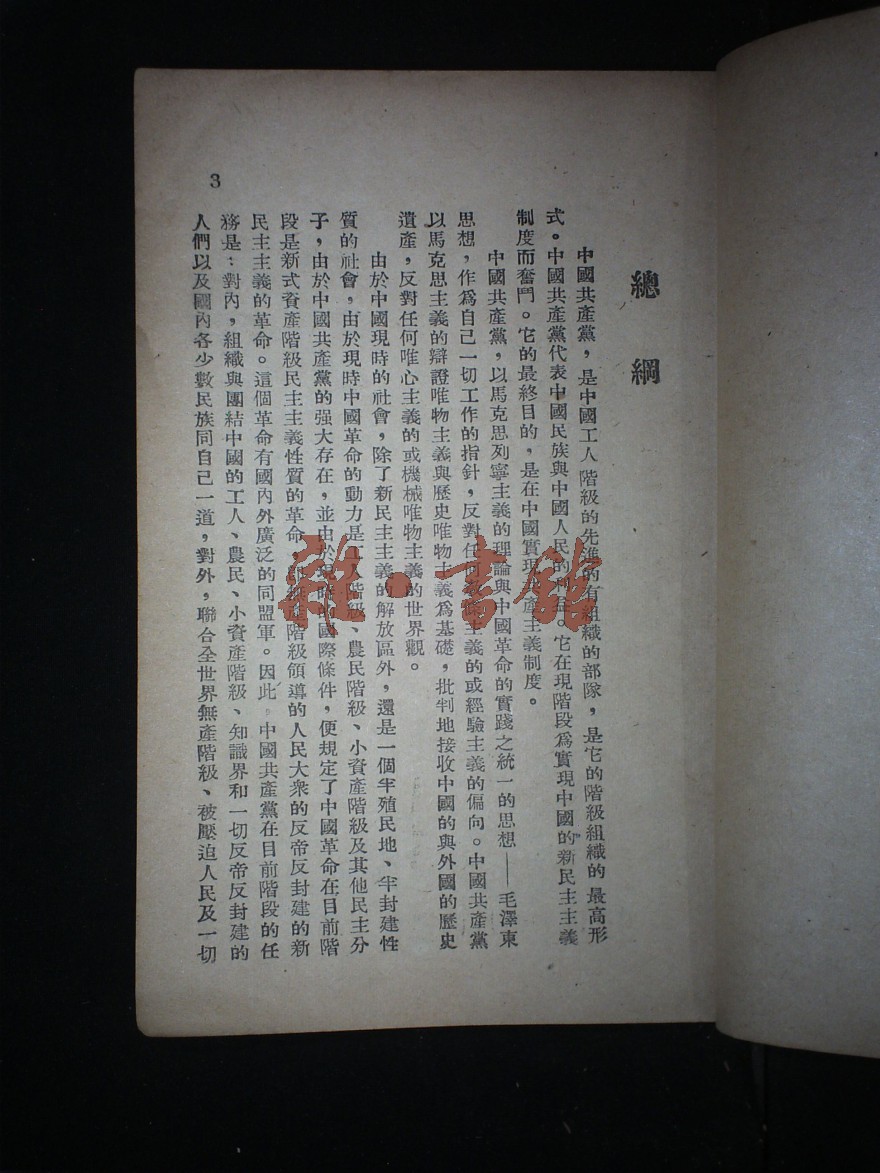 總綱
中國共產黨，是中國工人階級的先進的有組織的部隊，是它的階級組織的最高形
式。中國共產黨代表中國民族與中國人民的利益。它在現階段爲實現中國的新民主主義
制度而奮鬥。它的最終目的，是在中國實現共產主義制度。
中國共產黨，以馬克思列寧主義的理論與中國革命的實踐之統一的思想——毛澤東
思想，作爲自己一切工作的指針，反對任何教條主義的或經驗主義的偏向。中國共產黨
以馬克思主義的辯證唯物主義與歷史唯物主義爲基礎，批判地接收中國的與外國的歷史
遺產，反對任何唯心主義的或機械唯物主義的世界觀。
由於中國現時的社會，除了新民主主義的解放區外，還是一個半殖民地、半封建性
質的社會，由於現時中國革命的動力是工人階級、農民階級、小資產階級及其他民主分
子，由於中國共產黨的强大存在，並由於現時的國際條件，便規定了中國革命在目前階
段是新式資產階級民主主義性質的革命，即無產階級領導的人民大衆的反帝反封建的新
民主主義的革命。這個革命有國內外廣泛的同盟軍。因此，中國共產黨在目前階段的任
務是：對內，組織與團結中國的工人、農民、小資產階級、知識界和一切反帝反封建的
人們以及國內各少數民族同自己一道，對外，聯合全世界無產階級、被壓迫人民及一切
3
雜·書館